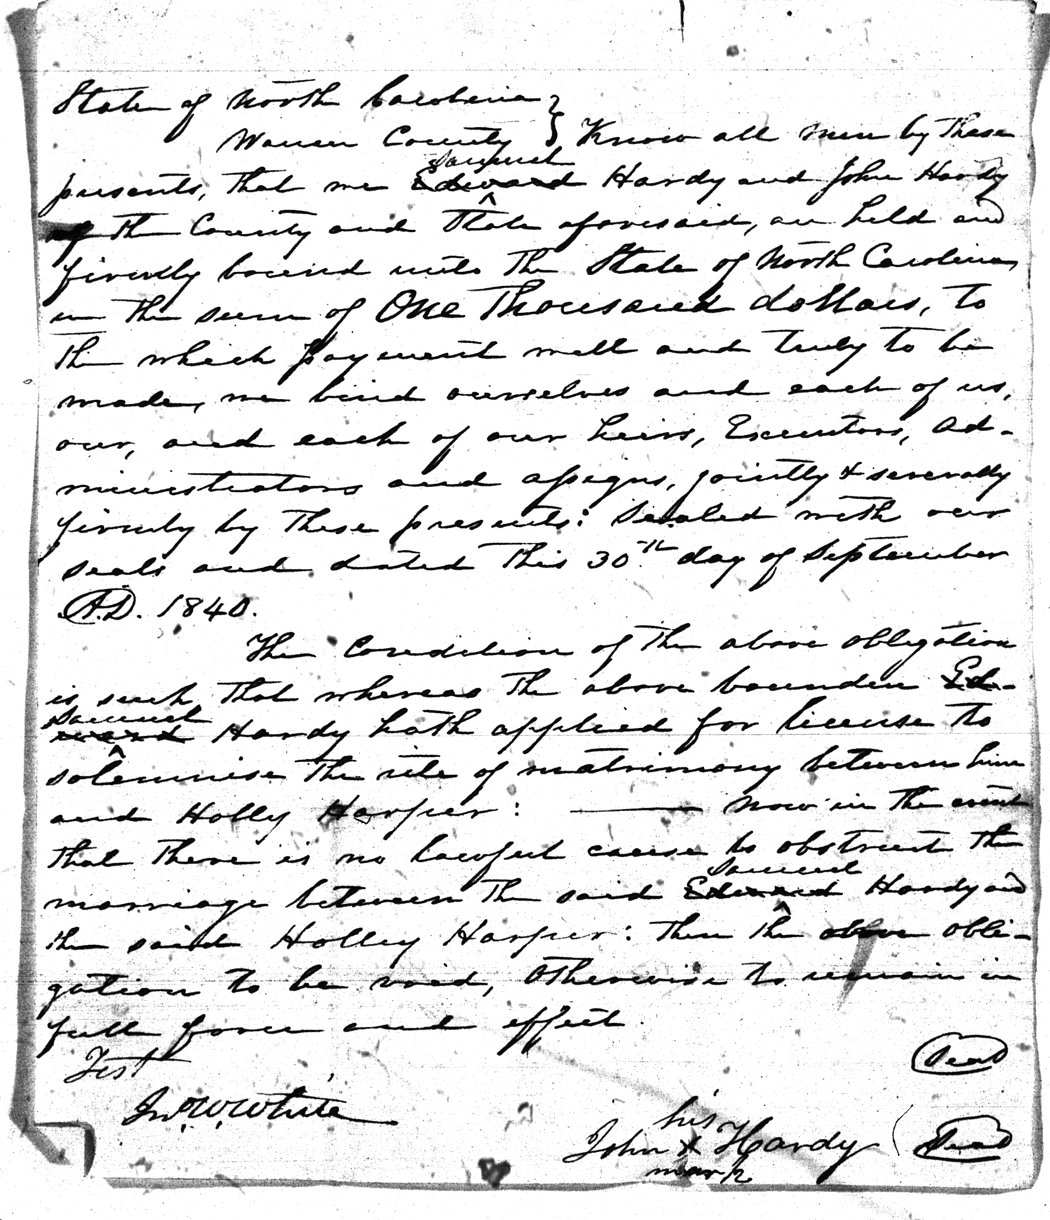 State of North Carolina }
Warren County } Know all men by these
presents, that we Edward Samuel Hardy and John Hardy
of the County and State aforesaid, are held and
firmly bound unto the State of North Carolina
in the sum of One Thousand dollars, to
the which payment well and truly to be
made, we bind ourselves and each of us,
our, and each of our heirs, Executors, Ad-
ministrators and assigns, jointly & severally
firmly by these presents: Sealed with our
seals and dated this 30th day of September
A.D. 1840.
The Condition of the above obligation
is such, that whereas the above bounden Ed-
ward Samuel Hardy hath applied for license to
solemnise the rite of matrimony between him
and Holly Harper: —— now in the event
that there is no lawful cause to obstruct the
marriage between the said Edward Samuel Hardy and
the said Holley Harper: then the above obli-
gation to be void, otherwise to remain in
full force and effect.
Test
Jno. W. White
Seal
his
John X Hardy Seal
mark